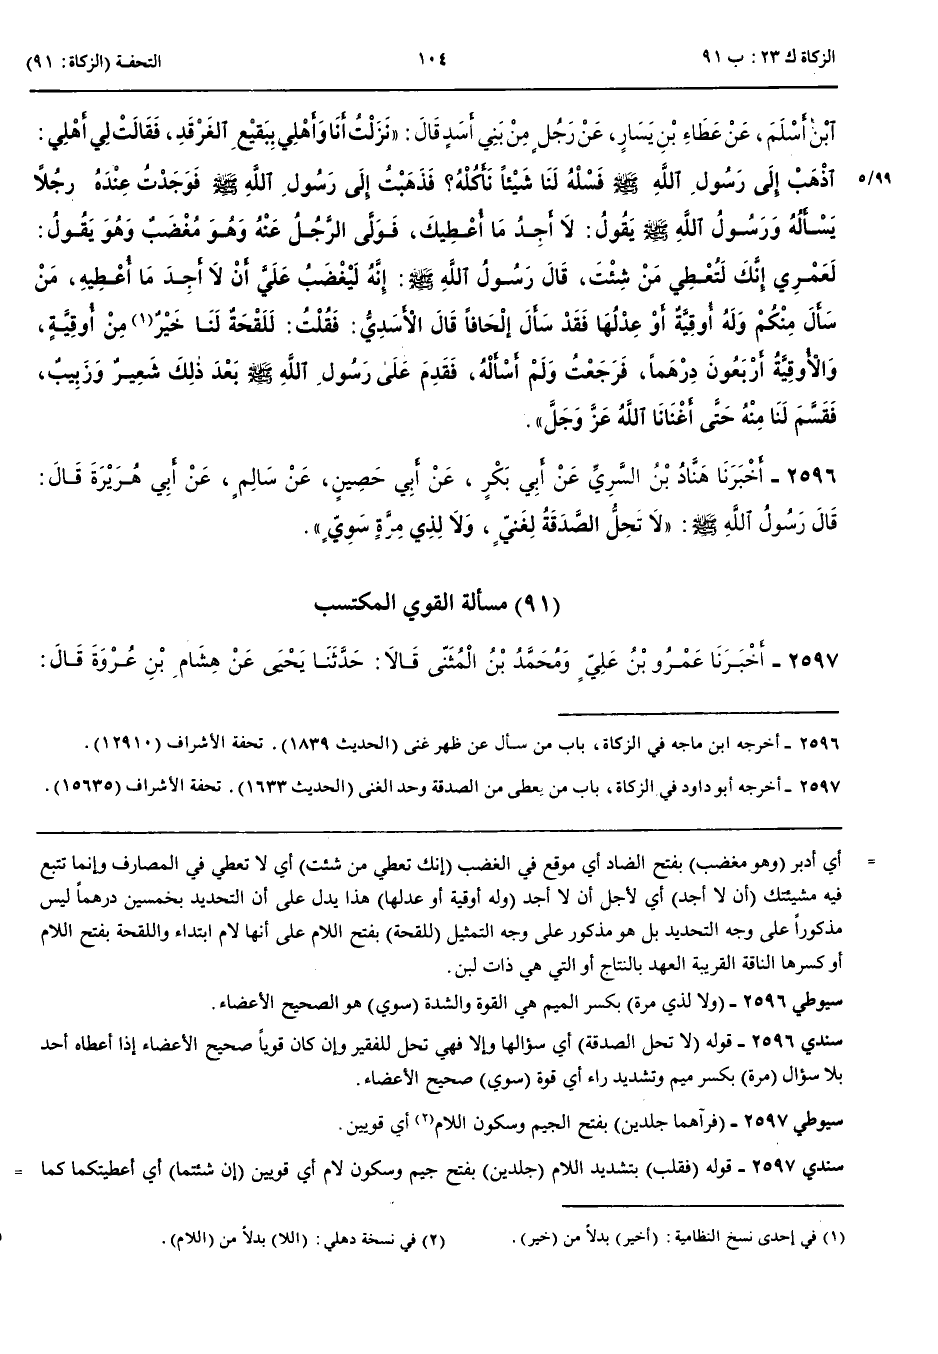 الزكاة ك ٢٣ : ب ٩١
١٠٤
التحفة (الزكاة : ٩١)
ٱبْنُ أَسْلَمَ، عَنْ عَطَاءِ بْنِ يَسَارٍ، عَنْ رَجُلٍ مِنْ بَنِي أَسَدٍ قَالَ: «نَزَلْتُ أَنَا وَأَهْلِي بِبَقِيعِ الغَرْقَدِ، فَقَالَتْ لِي أَهْلِي:
٥/٩٩
ٱذْهَبْ إِلَى رَسُولِ ٱللَّهِ ﷺ فَسَلْهُ لَنَا شَيْئاً نَأْكُلُهُ؟ فَذَهَبْتُ إِلَى رَسُولِ ٱللَّهِ ﷺ فَوَجَدْتُ عِنْدَهُ رَجُلاً
يَسْأَلُهُ وَرَسُولُ ٱللَّهِ ﷺ يَقُولُ: لَا أَجِدُ مَا أُعْطِيكَ، فَوَلَّى الرَّجُلُ عَنْهُ وَهُوَ مُغْضَبٌ وَهُوَ يَقُولُ:
لَعَمْرِي إِنَّكَ لَتُعْطِي مَنْ شِئْتَ، قَالَ رَسُولُ ٱللَّهِ ﷺ: إِنَّهُ لَيَغْضَبُ عَلَيَّ أَنْ لَا أَجِدَ مَا أُعْطِيهِ، مَنْ
سَأَلَ مِنْكُمْ وَلَهُ أُوقِيَّةٌ أَوْ عِدْلُهَا فَقَدْ سَأَلَ إِلْحَافاً قَالَ الأَسَدِيُّ: فَقُلْتُ: لَلَقْحَةٌ لَنَا خَيْرٌ(١) مِنْ أُوقِيَّةٍ،
وَالْأُوقِيَّةُ أَرْبَعُونَ دِرْهَماً، فَرَجَعْتُ وَلَمْ أَسْأَلْهُ، فَقَدِمَ عَلَىٰ رَسُولِ ٱللَّهِ ﷺ بَعْدَ ذٰلِكَ شَعِيرٌ وَزَبِيبٌ،
فَقَسَّمَ لَنَا مِنْهُ حَتَّى أَغْنَانَا اللَّهُ عَزَّ وَجَلَّ».
٢٥٩٦ - أَخْبَرَنَا هَنَّادُ بْنُ السَّرِيِّ عَنْ أَبِي بَكْرٍ، عَنْ أَبِي حَصِينٍ، عَنْ سَالِمٍ، عَنْ أَبِي هُرَيْرَةَ قَالَ:
قَالَ رَسُولُ ٱللَّهِ ﷺ: «لَا تَحِلُّ الصَّدَقَةُ لِغَنِيٍّ، وَلَا لِذِي مِرَّةٍ سَوِيٍّ».
(٩١) مسألة القوي المكتسب
٢٥٩٧ - أَخْبَرَنَا عَمْرُو بْنُ عَلِيٍّ وَمُحَمَّدُ بْنُ الْمُثَنَّى قَالَا: حَدَّثَنَا يَحْيَى عَنْ هِشَامِ بْنِ عُرْوَةَ قَالَ:
٢٥٩٦ - أخرجه ابن ماجه في الزكاة، باب من سأل عن ظهر غنى (الحديث ١٨٣٩). تحفة الأشراف (١٢٩١٠).
٢٥٩٧ - أخرجه أبو داود في الزكاة، باب من يعطى من الصدقة وحد الغنى (الحديث ١٦٣٣). تحفة الأشراف (١٥٦٣٥).
= أي أدبر (وهو مغضب) بفتح الضاد أي موقع في الغضب (إنك تعطي من شئت) أي لا تعطي في المصارف وإنما تتبع
فيه مشيئتك (أن لا أجد) أي لأجل أن لا أجد (وله أوقية أو عدلها) هذا يدل على أن التحديد بخمسين درهماً ليس
مذكوراً على وجه التحديد بل هو مذكور على وجه التمثيل (للقحة) بفتح اللام على أنها لام ابتداء واللقحة بفتح اللام
أو كسرها الناقة القريبة العهد بالنتاج أو التي هي ذات لبن.
سيوطي ٢٥٩٦ - (ولا لذي مرة) بكسر الميم هي القوة والشدة (سوي) هو الصحيح الأعضاء.
سندي ٢٥٩٦ - قوله (لا تحل الصدقة) أي سؤالها وإلا فهي تحل للفقير وإن كان قوياً صحيح الأعضاء إذا أعطاه أحد
بلا سؤال (مرة) بكسر ميم وتشديد راء أي قوة (سوي) صحيح الأعضاء.
سيوطي ٢٥٩٧ - (فرآهما جلدين) بفتح الجيم وسكون اللام(٢) أي قويين.
سندي ٢٥٩٧ - قوله (فقلب) بتشديد اللام (جلدين) بفتح جيم وسكون لام أي قويين (إن شئتما) أي أعطيتكما كما =
(١) في إحدى نسخ النظامية: (أخير) بدلاً من (خير).
(٢) في نسخة دهلي: (اللا) بدلاً من (اللام).